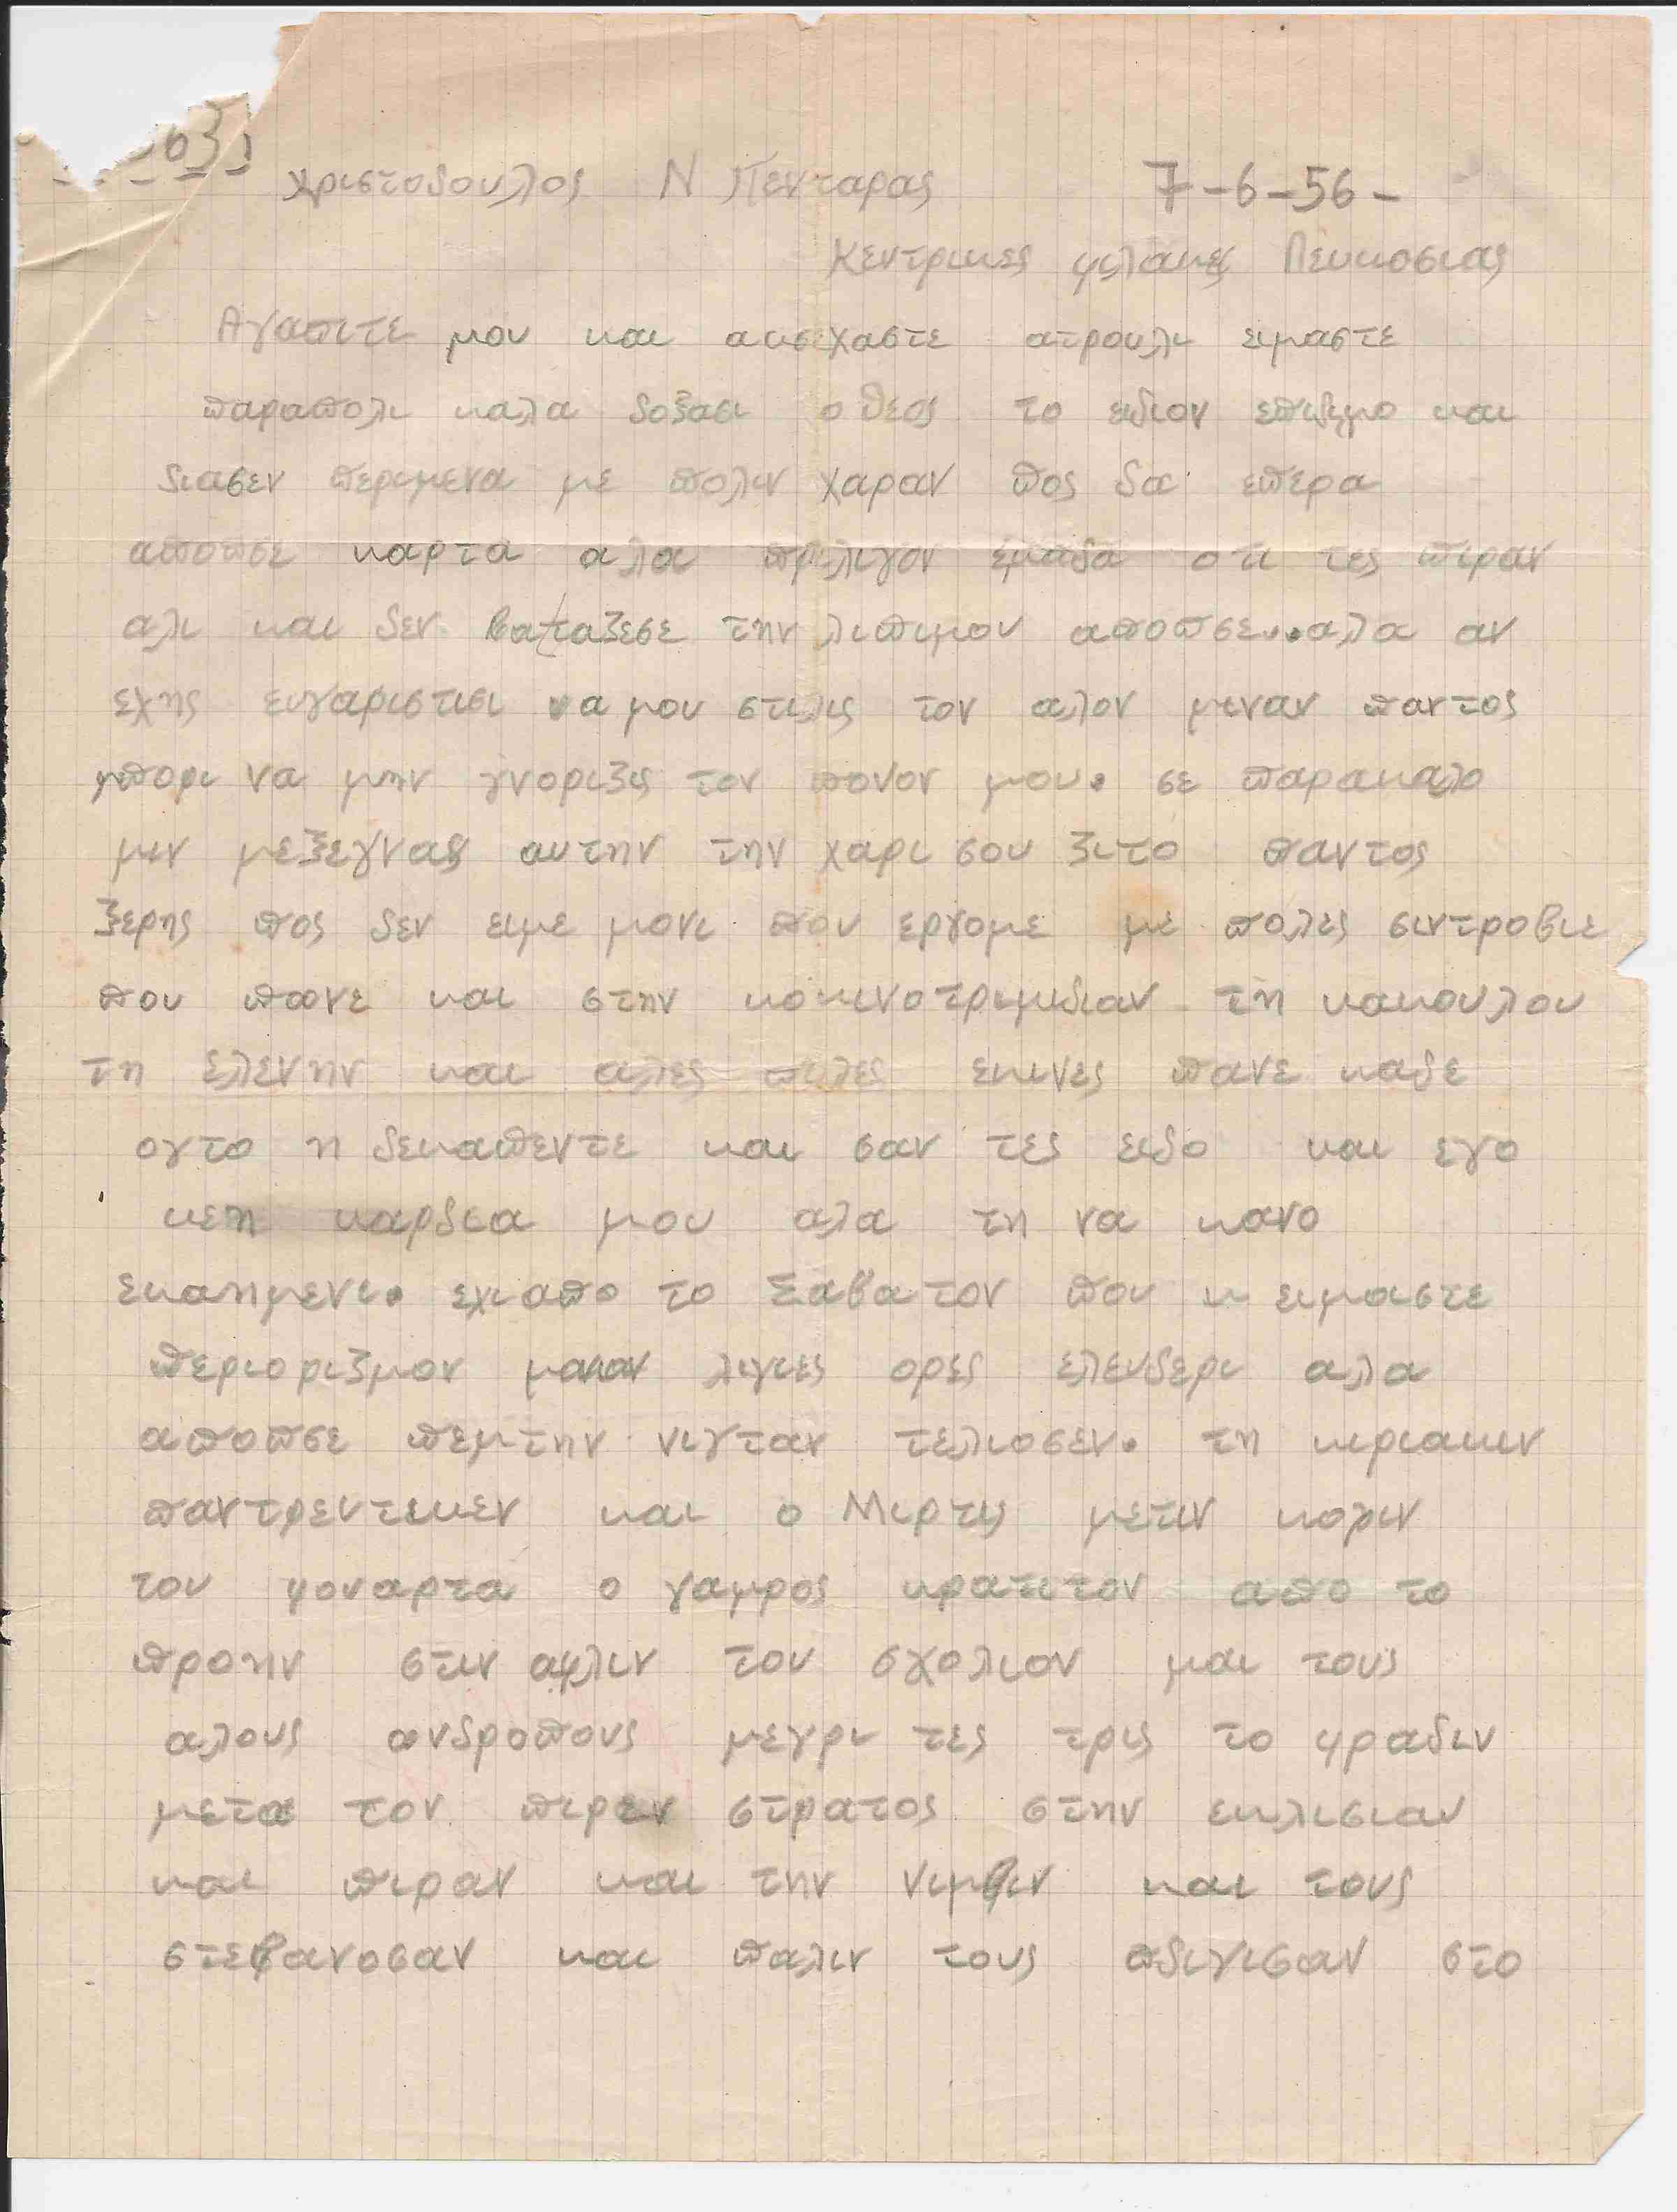 63
χριστοδουλος Ν Πενταρας 7-6-56-
Κεντρικες φιλακες Λευκοσιας
Αγαπιτε μου και ακσεχαστε ατρουλι ειμαστε
παραπολι καλα δοξασι ο θεος το ειδιον επιθιμο και
διασεν περιμενα με πολιν χαραν πος δα επερα
αποπσε καρτα αλα πριλιγον εμαδα οτι τες πιραν
αλι και δεν βαταξεσε την λιπιμου αποπσε..αλα αν
εχης ευγαριστισι να μου στιλις τον αλον μιναν παντος
μπορι να μην γνοριξις τον πονον μου. σε παρακαλο
μιν μεξεγνας αυτην την χαρι σου ξιτο παντος
ξερης πος δεν ειμε μονι που εργομε με πολες σιντροβιε
που πανε και στην κοκινοτριμιδιαν τη κακουλου
τη ελενην και αλες πιλες εκινες πανε καδε
ογτο η δεκαπεντε και σαν τες ειδο και εγο
κεη καρδια μου αλα τη να κανο
εκαημενι. εχιαπο το Σαβατον που κ ειμαστε
περιοριξμον μοναν λιγιες ορες ελευδερι αλα
αποπσε πεμτην νιγταν τελιοσεν. τη κιριακιν
παντρευτικεν και ο Μιρτις μετιν κοριν
του φοναρτα ο γαμρος κρατιτον απο το
προην στιν αφλιν του σχολιου μαι τους
αλους ανδροπους μεγρι τες τρις το φραδιν
μετα τον πιρεν στρατος στην εκλισιαν
και πιραν και την νιμφιν και τους
στεφανοσαν και παλιν τους οδιγισαν στο